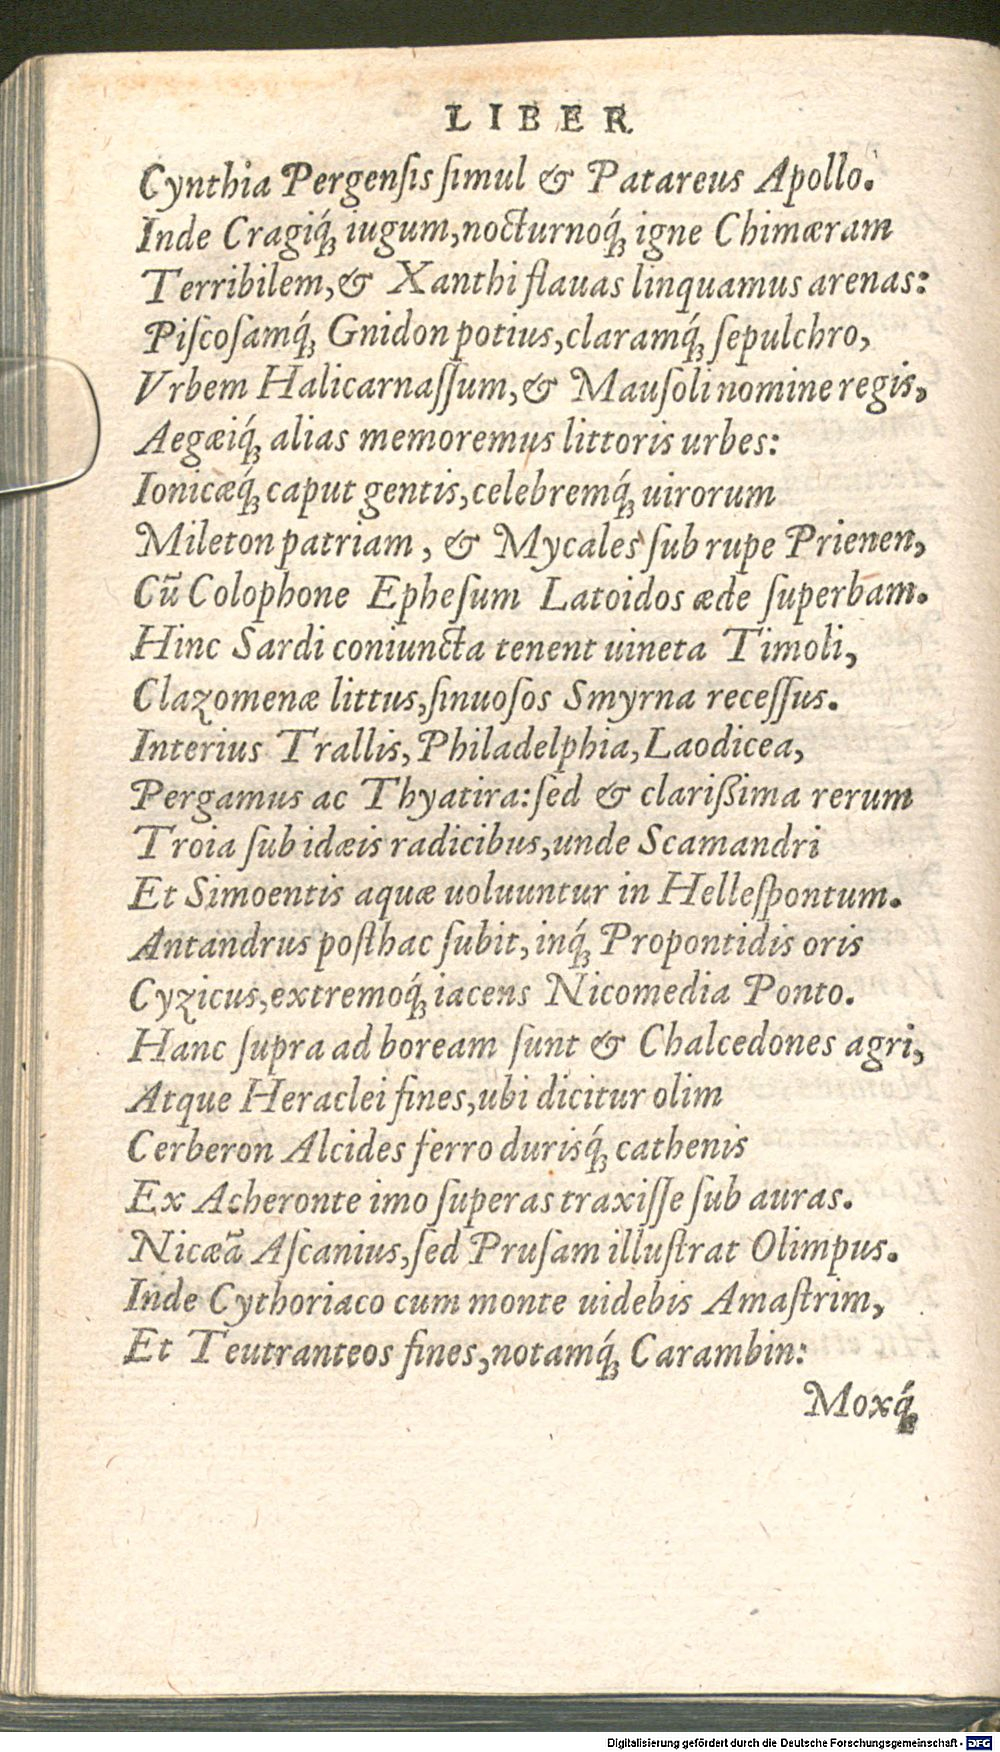 LIBER
Cynthia Pergenſis ſimul & Patareus Apollo.
Inde Cragiq́ꝫ iugum, nocturnoq́ꝫ igne Chimæram
Terribilem, & Xanthi flauas linquamus arenas:
Piſcoſamq́ꝫ Gnidon potius, claramq́ꝫ ſepulchro,
Vrbem Halicarnaſſum, & Mauſoli nomine regis,
Aegæiq́ꝫ alias memoremus littoris urbes:
Ionicæq́ꝫ caput gentis, celebremq́ꝫ uirorum
Mileton patriam, & Mycales ſub rupe Prienen,
Cū Colophone Epheſum Latoidos æde ſuperbam.
Hinc Sardi coniuncta tenent uineta Timoli,
Clazomenæ littus, ſinuoſos Smyrna receſſus.
Interius Trallis, Philadelphia, Laodicea,
Pergamus ac Thyatira: ſed & clarißima rerum
Troia ſub idæis radicibus, unde Scamandri
Et Simoentis aquæ uoluuntur in Helleſpontum.
Antandrus poſthac ſubit, inq́ꝫ Propontidis oris
Cyzicus, extremoq́ꝫ iacens Nicomedia Ponto.
Hanc ſupra ad boream ſunt & Chalcedones agri,
Atque Heraclei fines, ubi dicitur olim
Cerberon Alcides ferro durisq́ꝫ cathenis
Ex Acheronte imo ſuperas traxiſſe ſub auras.
Nicæā Aſcanius, ſed Pruſam illuſtrat Olimpus.
Inde Cythoriaco cum monte uidebis Amaſtrim,
Et Teutranteos fines, notamq́ꝫ Carambin:
Moxq́ꝫ
Digitalisierung gefördert durch die Deutsche Forschungsgemeinschaft - DFG